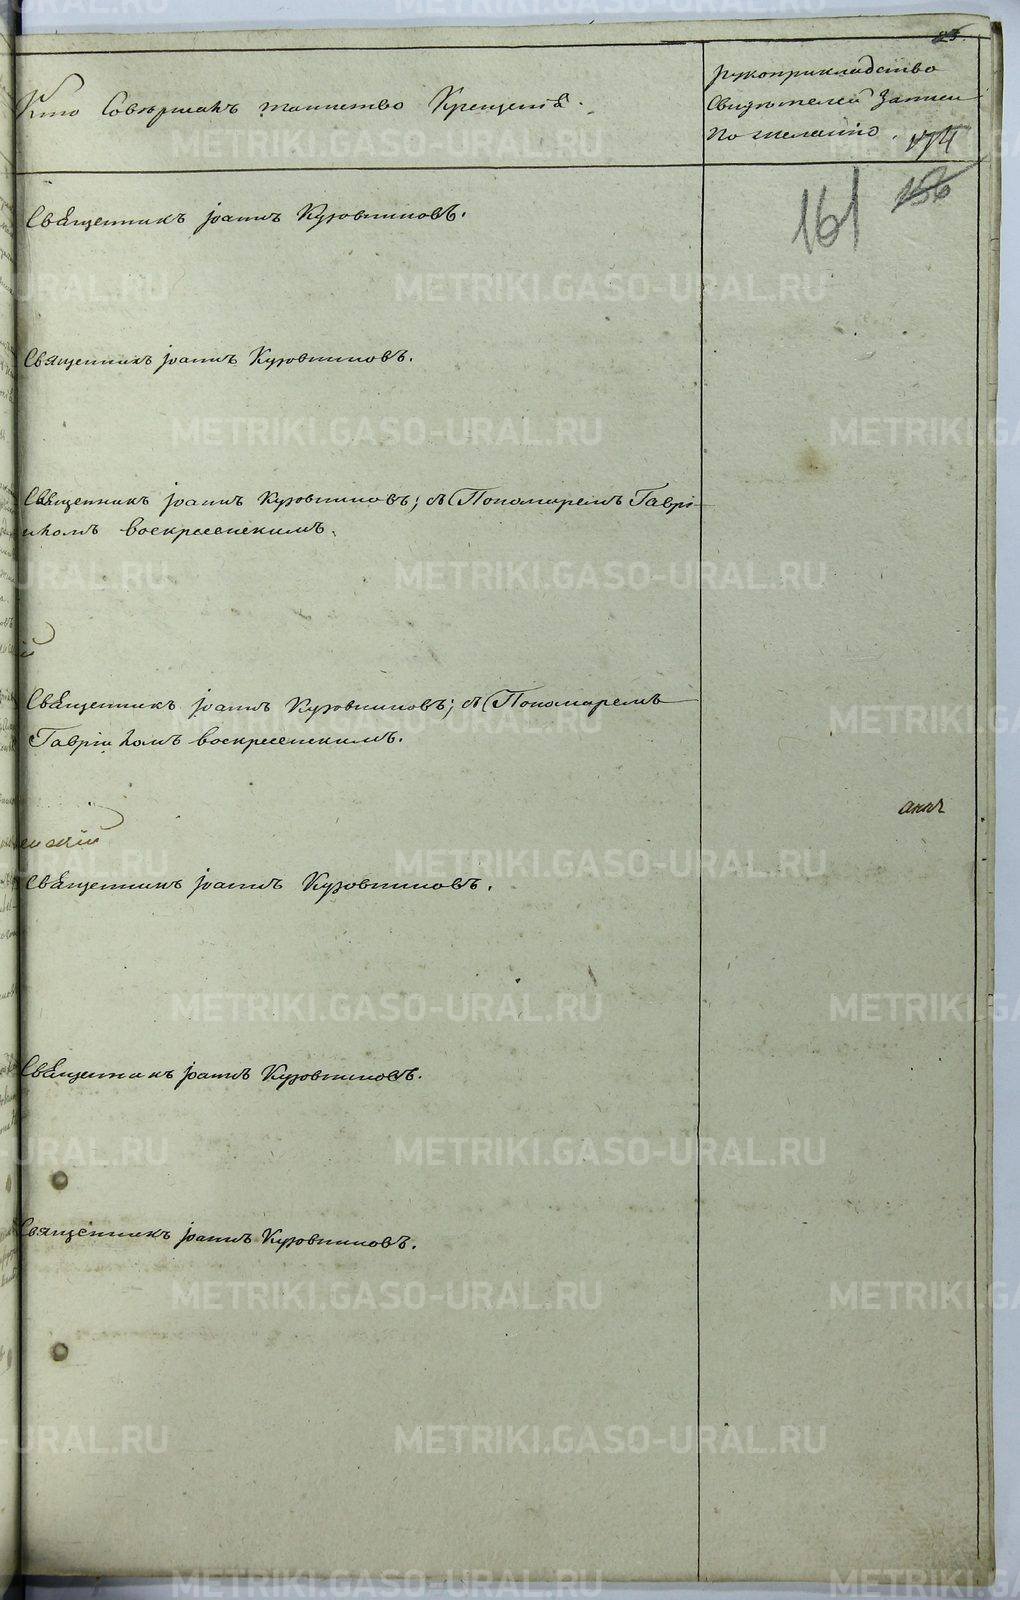 83.
Кто Совершалъ таинство Крещенія.
рукоприкладство
Свидѣтелей Записи
По желанію.
174
156
161
Священникъ Іоаннъ Кузовниковъ.
Священникъ Іоаннъ Кузовниковъ.
Священникъ Іоаннъ Кузовниковъ; съ Пономаремъ Гаврі-
иломъ воскресенскимъ.
Священникъ Іоаннъ Кузовниковъ; съ Пономаремъ
Гавріиломъ воскресенскимъ.
Священникъ Іоаннъ Кузовниковъ.
Священникъ Іоаннъ Кузовниковъ.
Священникъ Іоаннъ Кузовниковъ.
METRIKI.GASO-URAL.RU